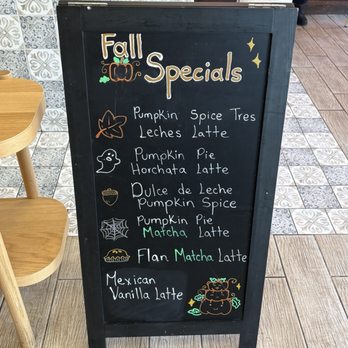 Fall
Specials
Pumpkin Spice Tres
Leches Latte
Pumpkin Pie
Horchata Latte
Dulce de Leche
Pumpkin Spice
Pumpkin Pie
Matcha Latte
Flan Matcha Latte
Mexican
Vanilla Latte